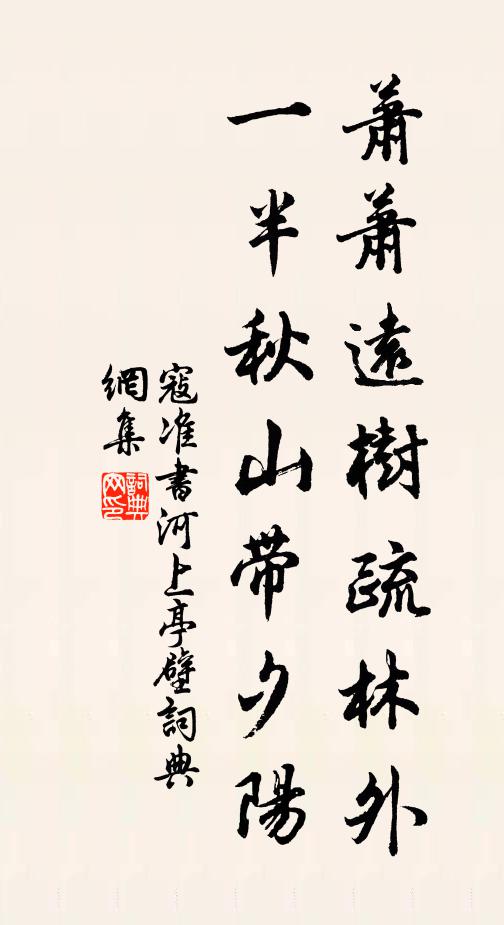 蕭蕭遠樹疏林外
一半秋山帶夕陽
寇准書河上亭壁詞典
網集
詞典網印